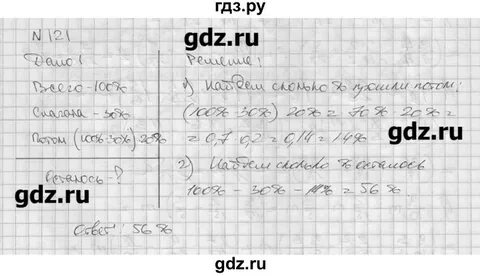 гдз.ру
gdz.ru
N 121
Дано:
Решение:
Всего - 100%
1) Найдем сколько % ушли потом:
Сначала - 30%
(100% - 30%) · 20% = 70% · 20% =
Потом (100%-30%)·20%
= 0,7 · 0,2 = 0,14 = 14%
gdz.ru
Осталось - ?
2) Найдем сколько % осталось
gdz.ru
100% - 30% - 14% = 56%
gdz.ru
Ответ: 56%
gdz.ru